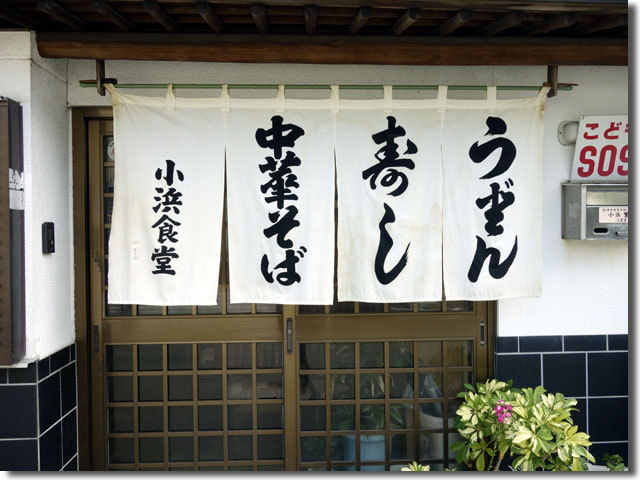 うどん
寿し
中華そば
小浜食堂
こども
SOS